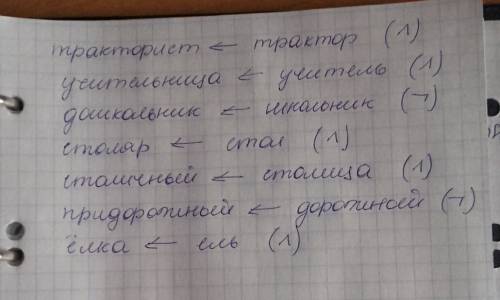 тракторист ← трактор (^)
учительница ← учитель (^)
дошкольник ← школьник (¬)
столяр ← стол (^)
столичный ← столица (^)
придорожный ← дорожный (¬)
ёлка ← ель (^)